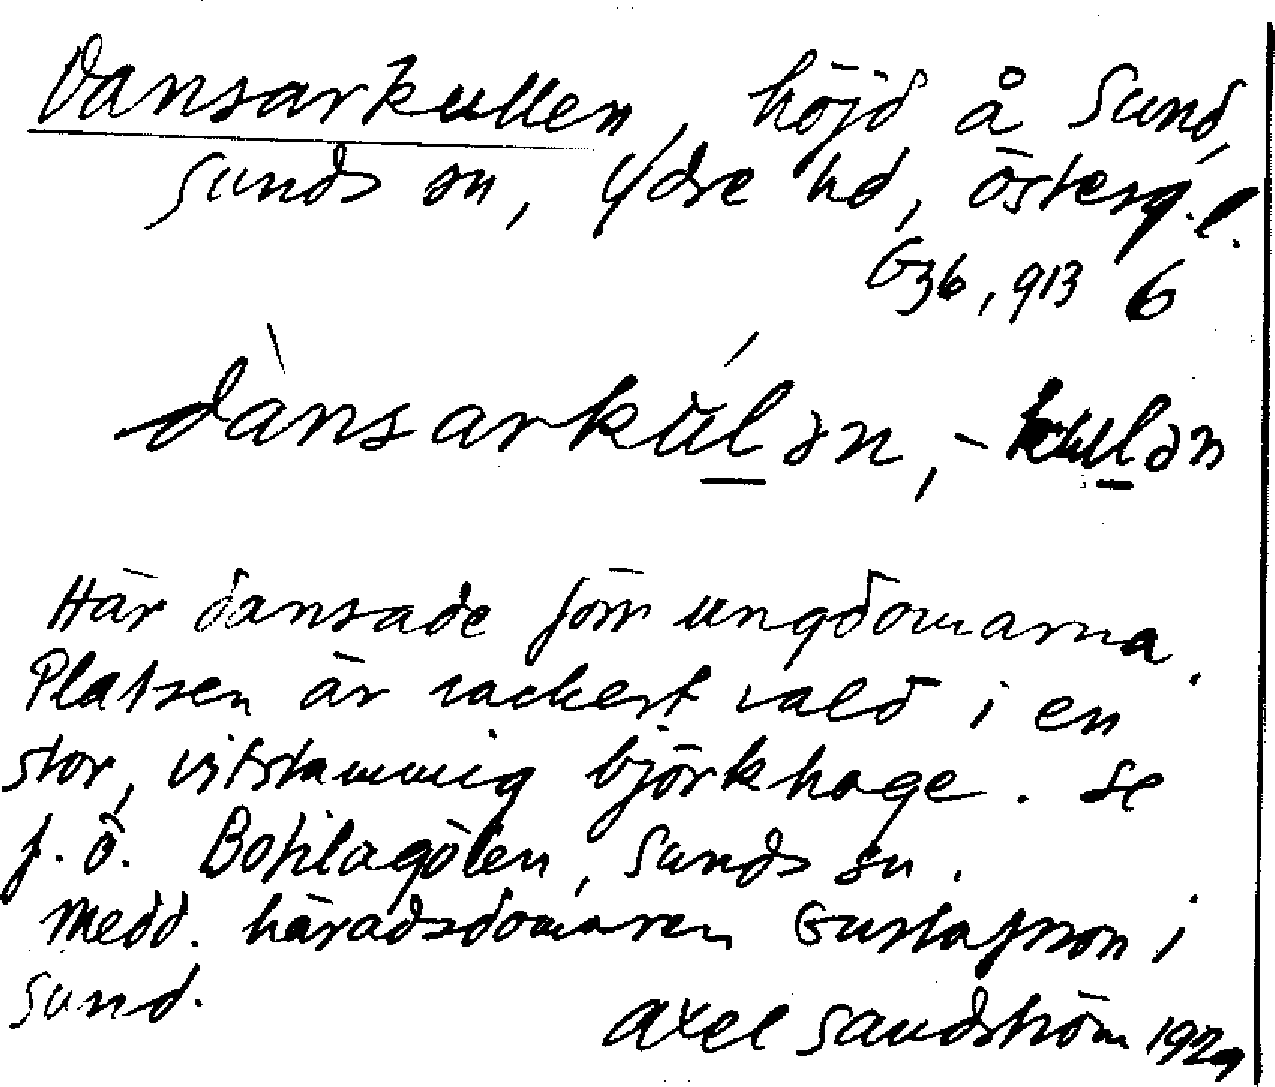 Dansarkullen, höjd å Sund,
Sunds sn, Ydre hd, Österg. l.
G36, 913 6
dànsarkúlən, -kulən
Här dansade förr ungdomarna.
Platsen är vackert vald i en
stor, vitstammig björkhage. Se
f. ö. Botilagölen, Sunds sn.
Medd. häradsdomaren Gustafsson i
Sund.
Axel Sandström 1929